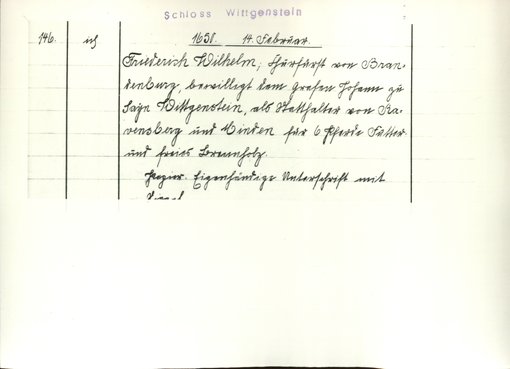 Schloss Wittgenstein
146. 1650. 14. Februar.
Friederich Wilhelm, Churfürst von Bran-
denburg, bewilligt dem Grafen Johann zu
Sayn Wittgenstein, als Statthalter von Ra-
vensberg und Minden für 6 Pferde Futter
und freies Brennholz.
Papier. Eigenhändige Unterschrift mit